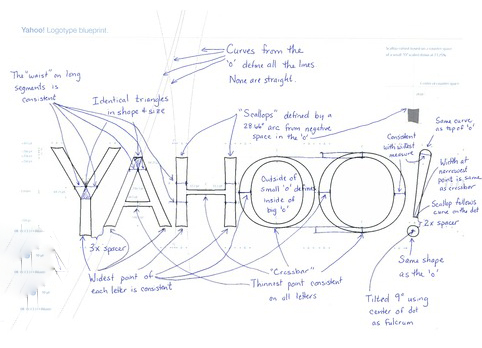 Yahoo! Logotype blueprint.
Curves from the
'o' define all the lines.
None are straight.
The "waist" on long
segments is
consistent
Identical triangles
in shape & size
"Scallops" defined by a
arc from negative
space in the 'o'
Same curve
as top of 'o'
Consistent
with
measure
Width at
narrowed
point is same
as crossbar
Scallop follows
curve on the dot
2x spacer
YAHOO!
Outside of
small 'o' defines
inside of
big 'o'
3x spacer
Widest point of
each letter is consistent
"Crossbar"
Thinnest point consistent
on all letters
Same shape
as the 'o'
Tilted 9° using
center of dot
as fulcrum